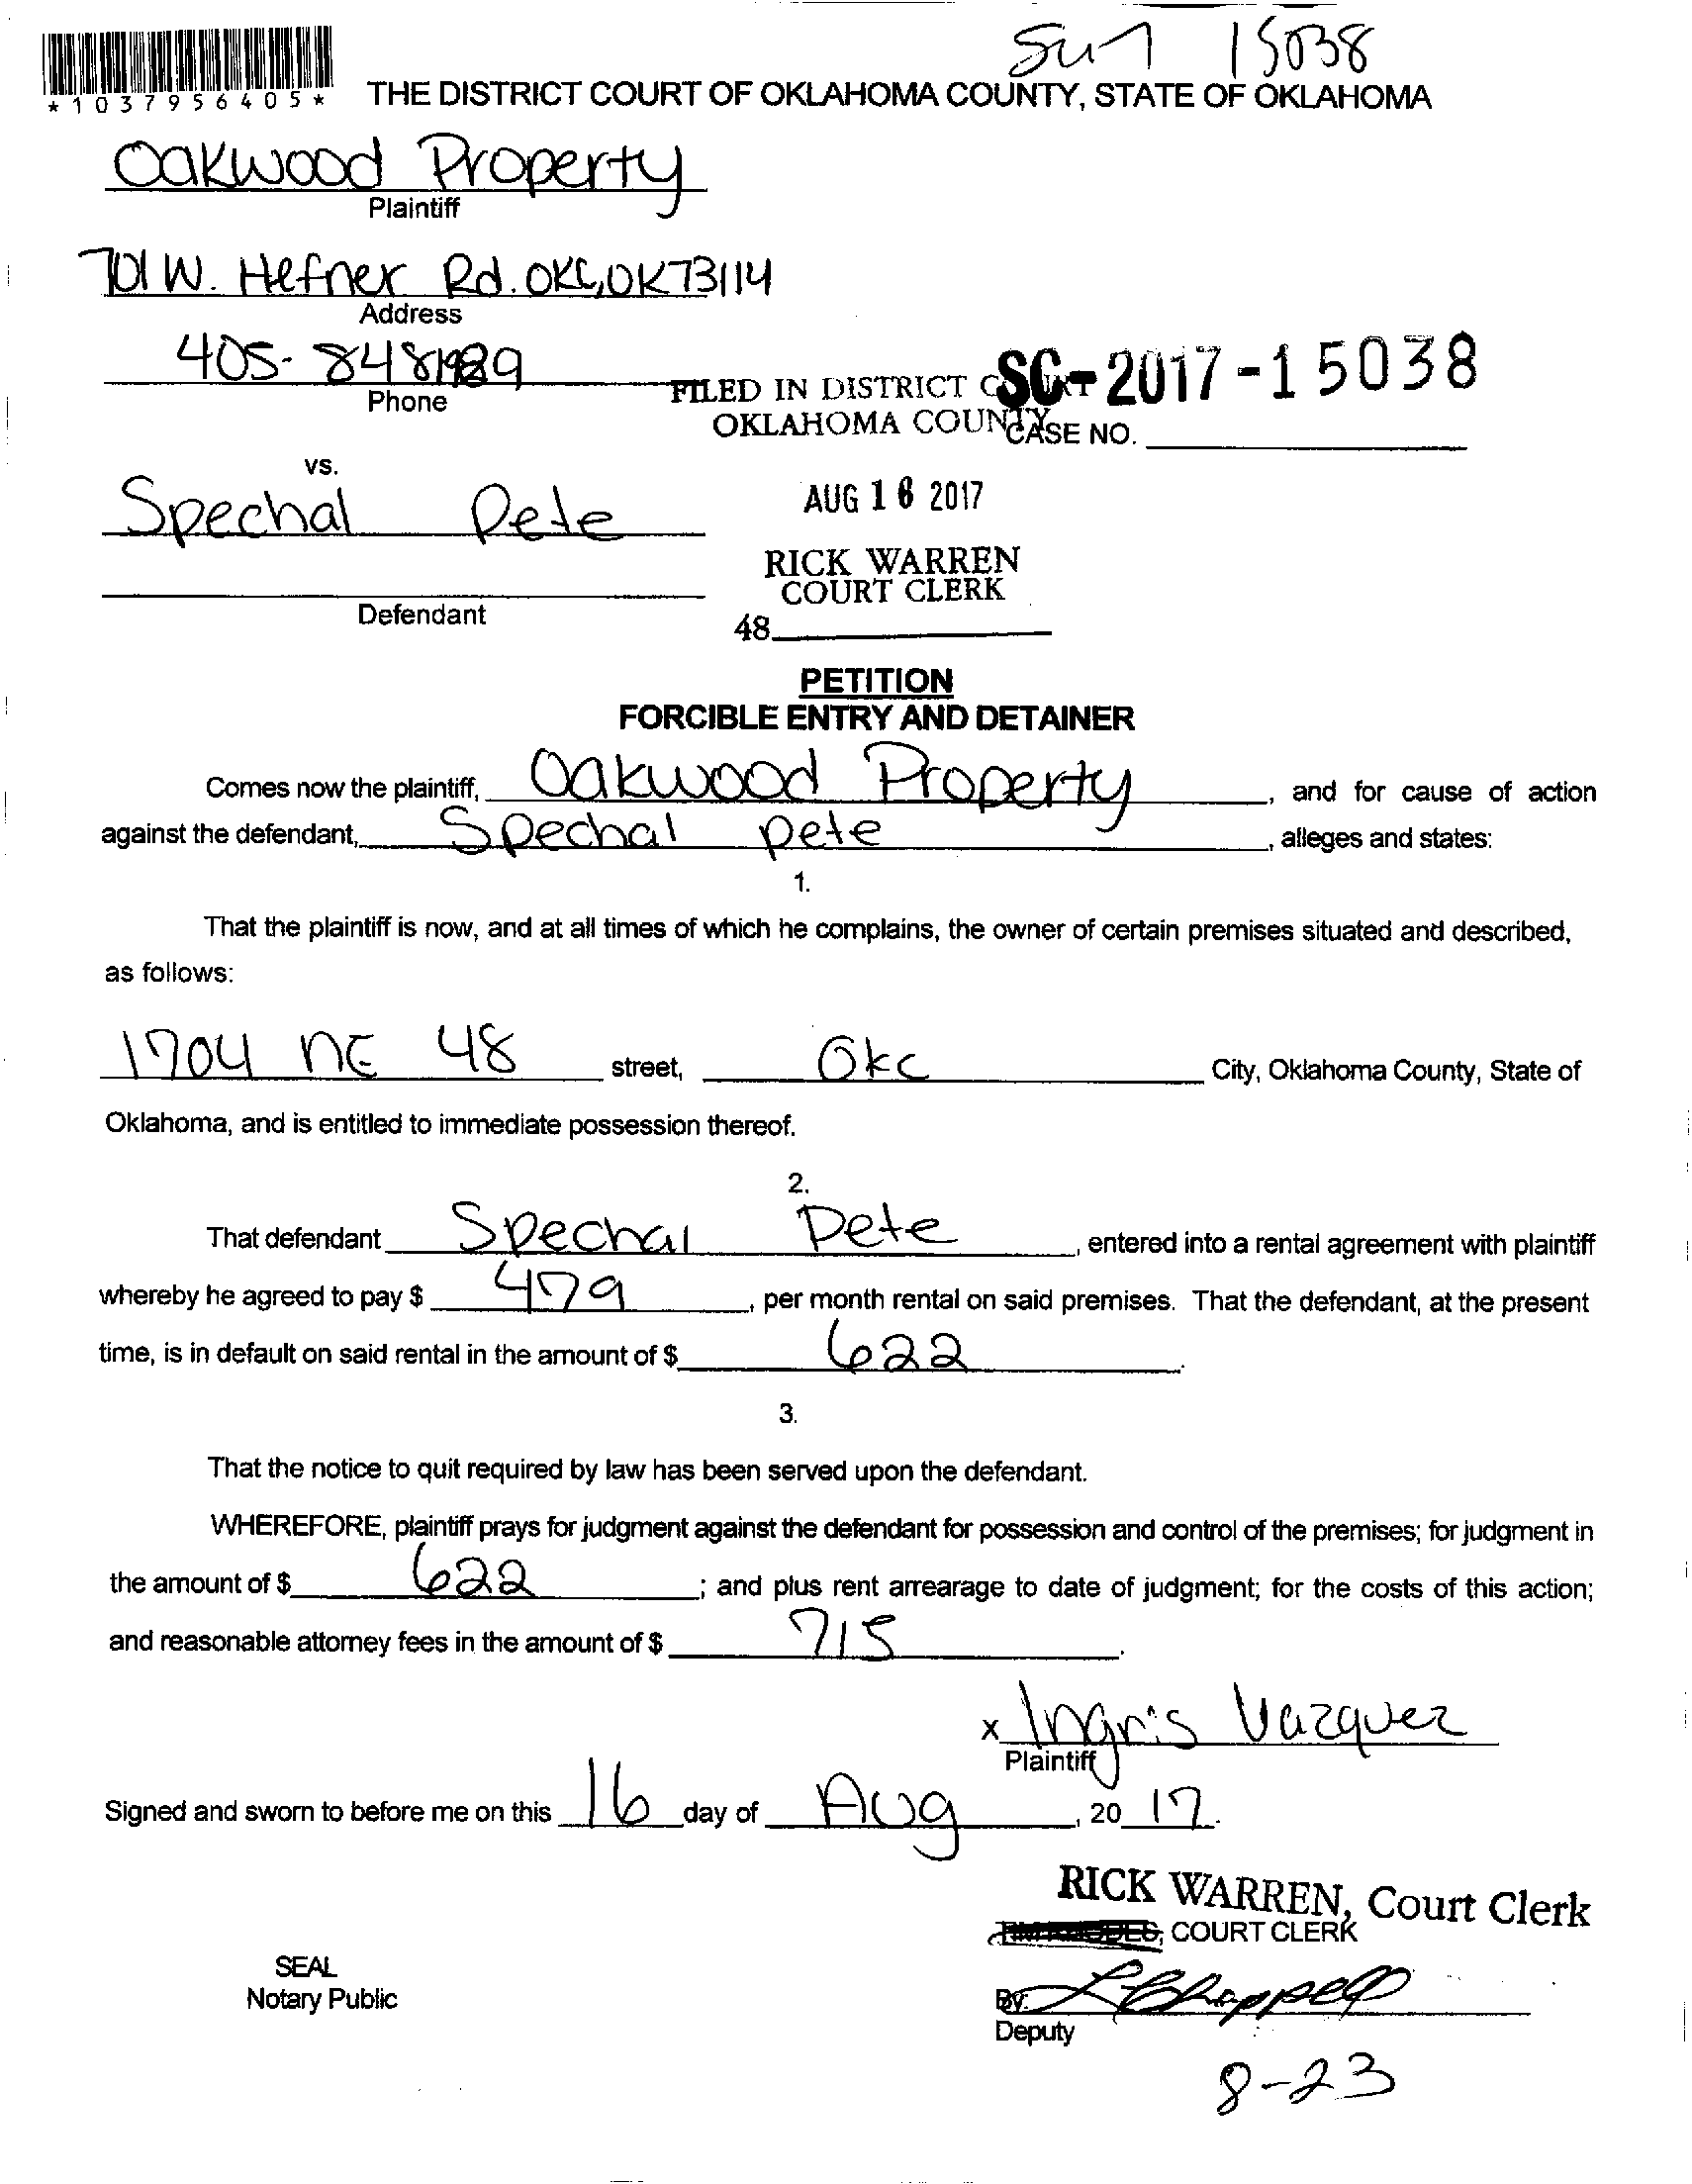 Su 15038
*1037956405*
THE DISTRICT COURT OF OKLAHOMA COUNTY, STATE OF OKLAHOMA
Oakwood Property
Plaintiff
701 W. Hefner Rd. OKC, OK 73114
Address
405-848
Phone
SC-2017-15038
FILED IN DISTRICT COURT
OKLAHOMA COUNTY
CASE NO.
vs.
Spechal Pete
AUG 16 2017
RICK WARREN
COURT CLERK
Defendant
48
PETITION
FORCIBLE ENTRY AND DETAINER
Comes now the plaintiff, Oakwood Property, and for cause of action
against the defendant, Spechal pete, alleges and states:
1.
That the plaintiff is now, and at all times of which he complains, the owner of certain premises situated and described,
as follows:
1704 NE 48 street, Okc City, Oklahoma County, State of
Oklahoma, and is entitled to immediate possession thereof.
2.
That defendant Spechal Pete, entered into a rental agreement with plaintiff
whereby he agreed to pay $ 479, per month rental on said premises. That the defendant, at the present
time, is in default on said rental in the amount of $ 622.
3.
That the notice to quit required by law has been served upon the defendant.
WHEREFORE, plaintiff prays for judgment against the defendant for possession and control of the premises; for judgment in
the amount of $ 622; and plus rent arrearage to date of judgment; for the costs of this action;
and reasonable attorney fees in the amount of $ 715.
x Ingris Vazquez
Plaintiff
Signed and sworn to before me on this 16 day of Aug, 20 17.
RICK WARREN, Court Clerk
COURT CLERK
SEAL
Notary Public
By: L Chappell
Deputy
8-23